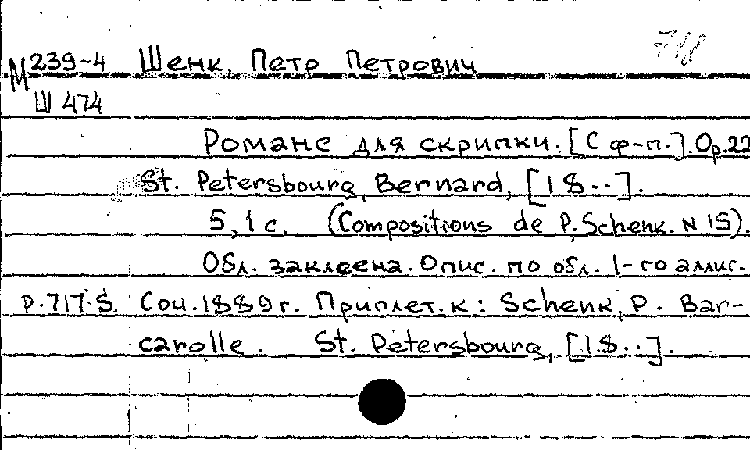 М 239-4 Шенк, Петр Петрович
Ш 474
Романс для скрипки. [С ф-п.]. Op.22
St. Petersbourg, Bernard, [18..].
5,1 с. (Compositions de P. Schenk. N 15).
Обл. заклеена. Опис. по обл. 1-го аллиг.
Р.717-S. Соч. 1889 г. Приплет. к: Schenk, P. Bar-
carolle. St. Petersbourg, [18..].